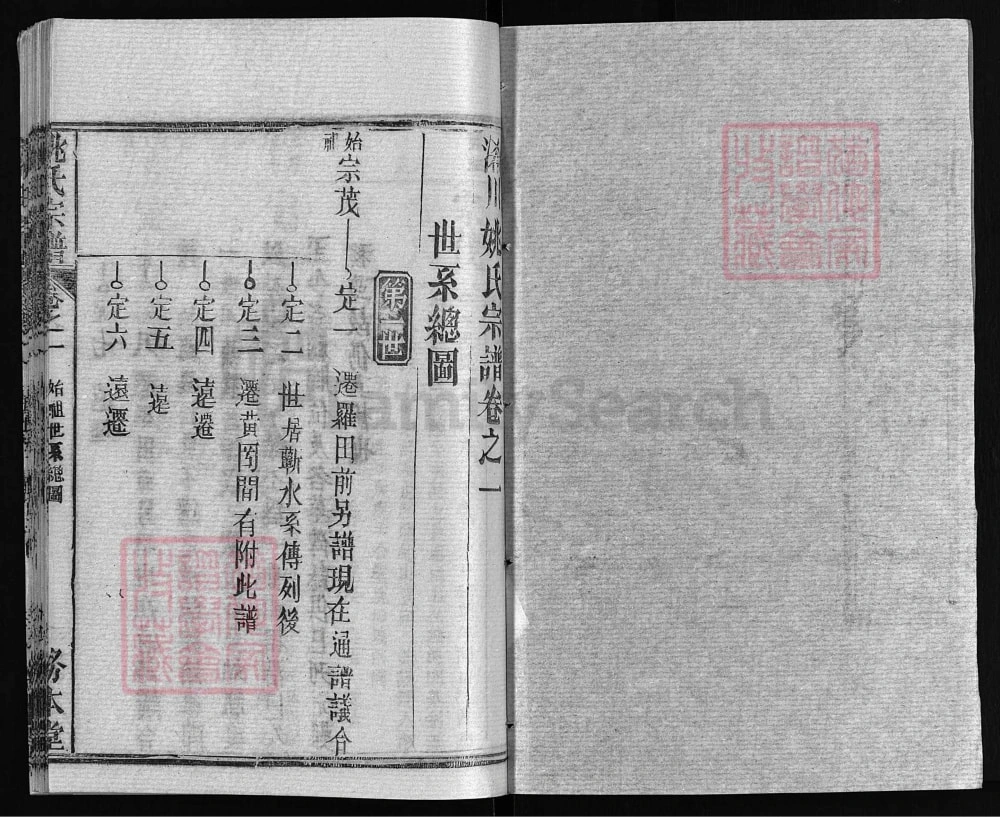 川姚氏宗譜卷之一
世系總圖
第二世
始祖宗茂
定一 遷羅田前另譜現在通譜議合
定二 世居蘄水系傳列後
定三 遷黃岡間有附此譜
定四 遠遷
定五 遠
定六 遠遷
姚氏宗譜
卷之一
始祖世系總圖
務本堂
FamilySearch